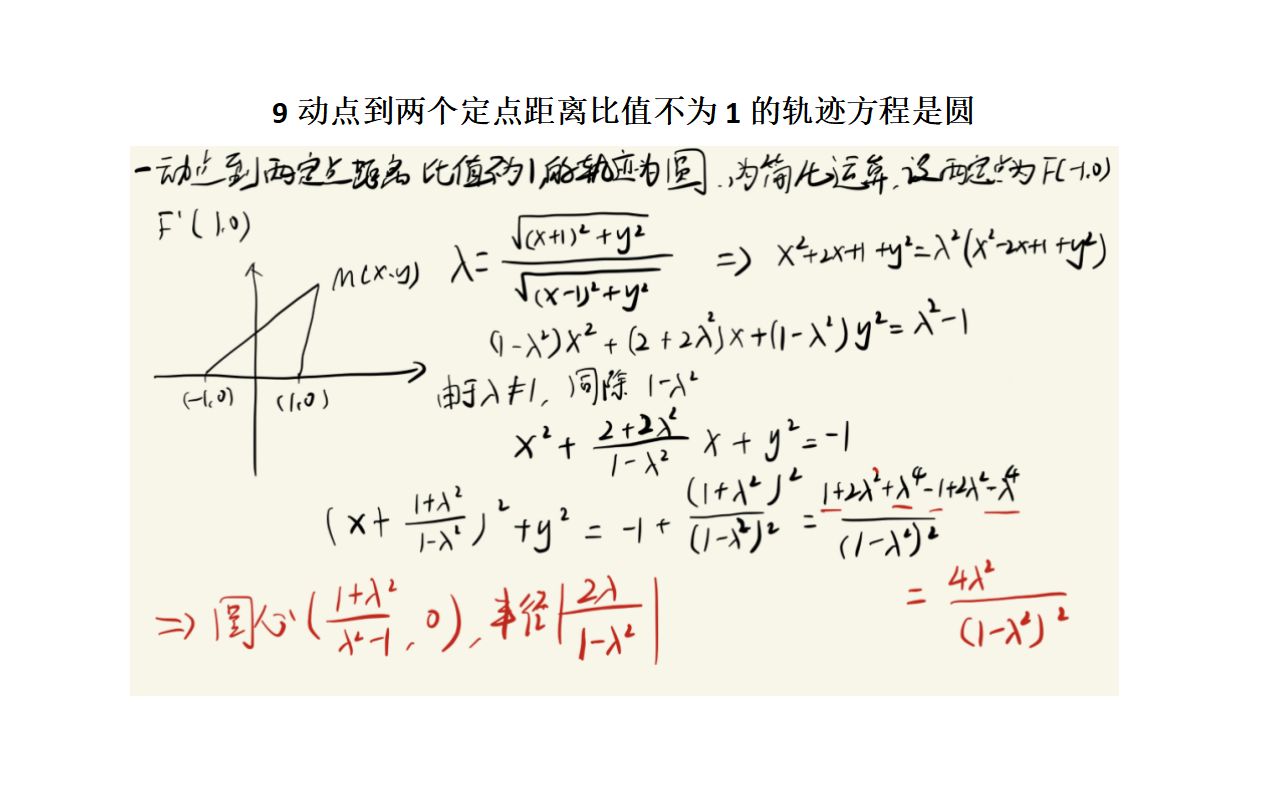 9 动点到两个定点距离比值不为 1 的轨迹方程是圆
一动点到两定点距离比值不为1,的轨迹为圆.,为简化运算,设两定点为F(-1,0)
F'(1,0)
λ = √((x+1)²+y²) / √((x-1)²+y²) => x²+2x+1+y²=λ²(x²-2x+1+y²)
M(x,y)
(1-λ²)x²+(2+2λ²)x+(1-λ²)y²=λ²-1
(-1,0) (1,0)
由于λ≠1,同除 1-λ²
x² + (2+2λ²)/(1-λ²) x + y² = -1
(x + (1+λ²)/(1-λ²))² + y² = -1 + (1+λ²)²/(1-λ²)² = (1+2λ²+λ⁴-1+2λ²-λ⁴)/(1-λ²)²
= 4λ²/(1-λ²)²
=> 圆心((1+λ²)/(λ²-1), 0), 半径|2λ/(1-λ²)|